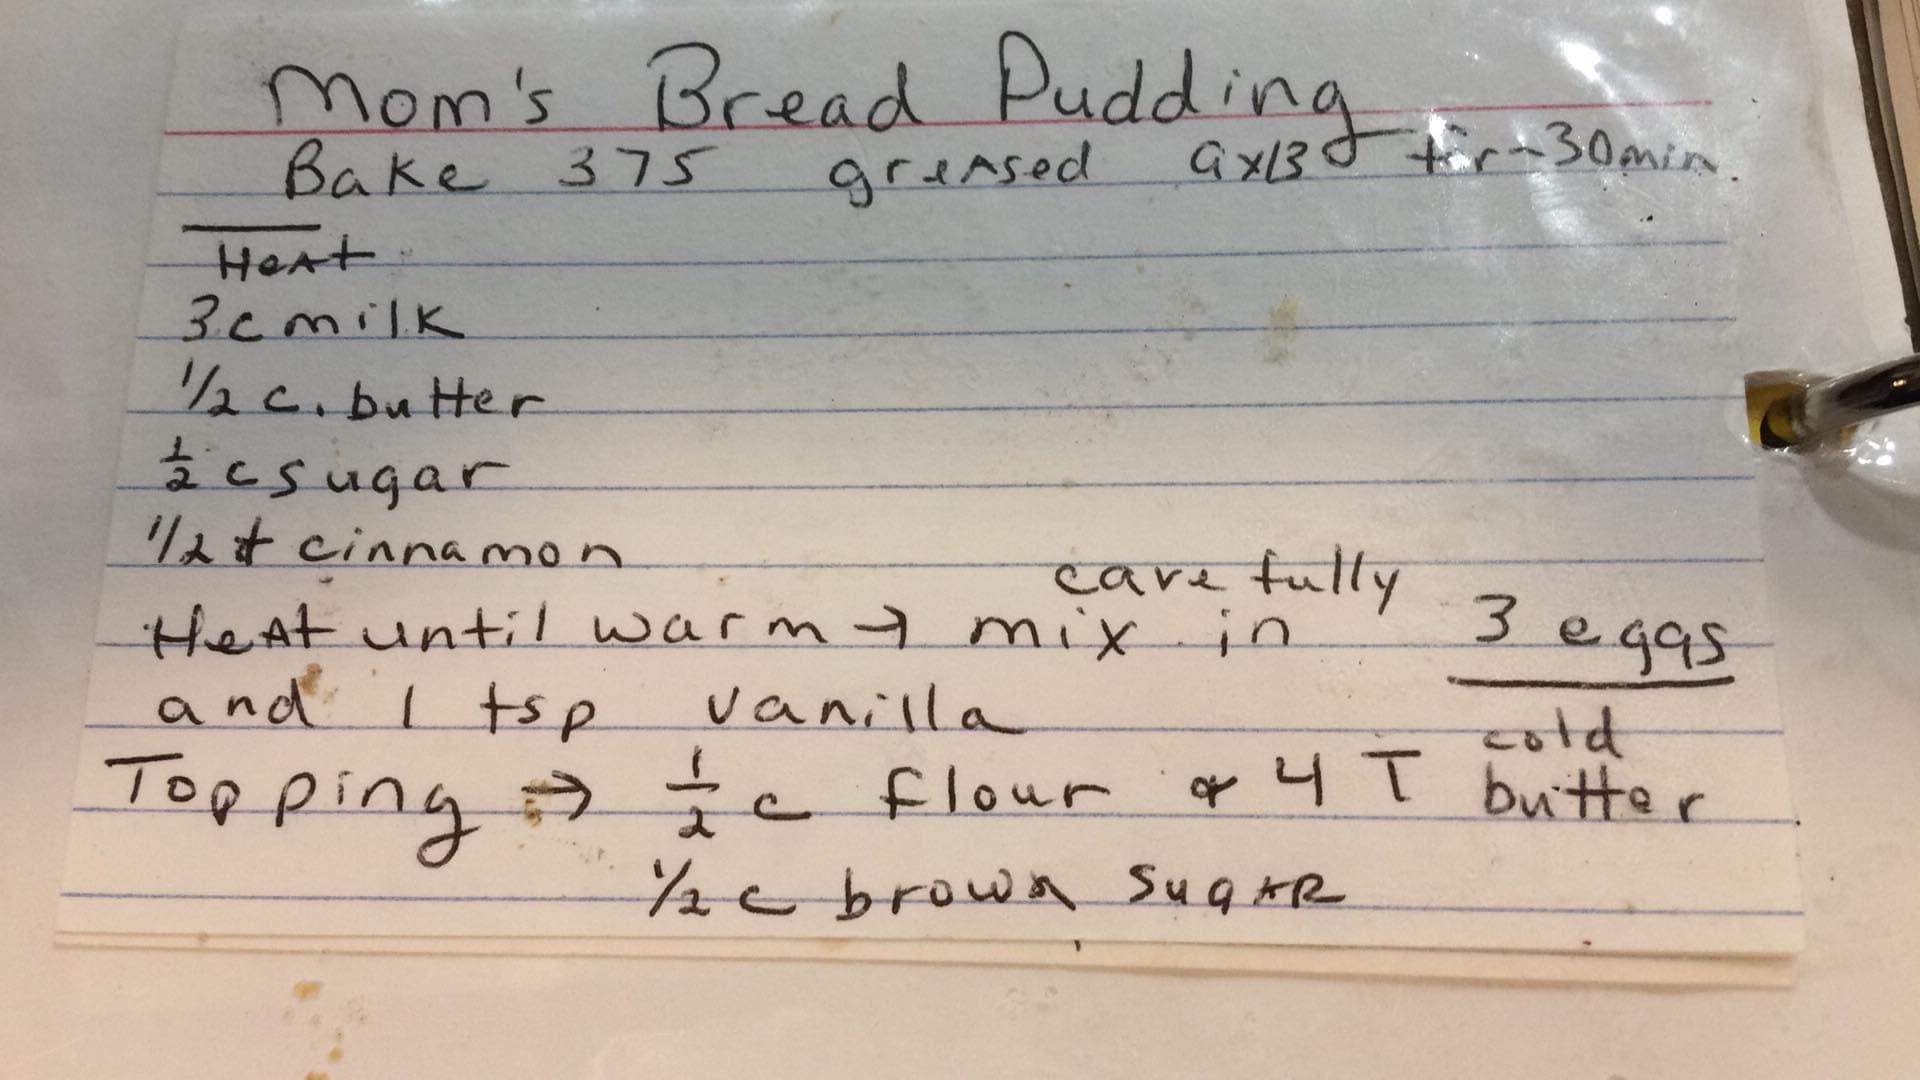 Mom's Bread Pudding
Bake 375 greased 9x13 for ~30min.
Heat
3c milk
1/2 c. butter
1/2 c sugar
1/2 t cinnamon
Heat until warm → mix in carefully 3 eggs
and 1 tsp vanilla
Topping → 1/2 c flour & 4 T cold butter
1/2 c brown sugar